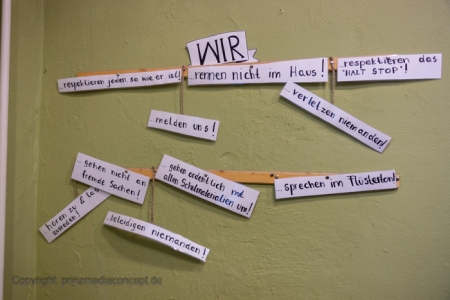 WIR
... respektieren jeden so wie er ist!
... rennen nicht im Haus!
... respektieren das
"HALT STOP"!
... melden uns!
... verletzen niemanden!
... gehen nicht an
fremde Sachen!
... gehen ordentlich mit
allen Schulmaterialien um!
... sprechen im Flüsterton!
hören zu &
ausreden!
... beleidigen niemanden!
Copyright: prinzmediaconcept.de